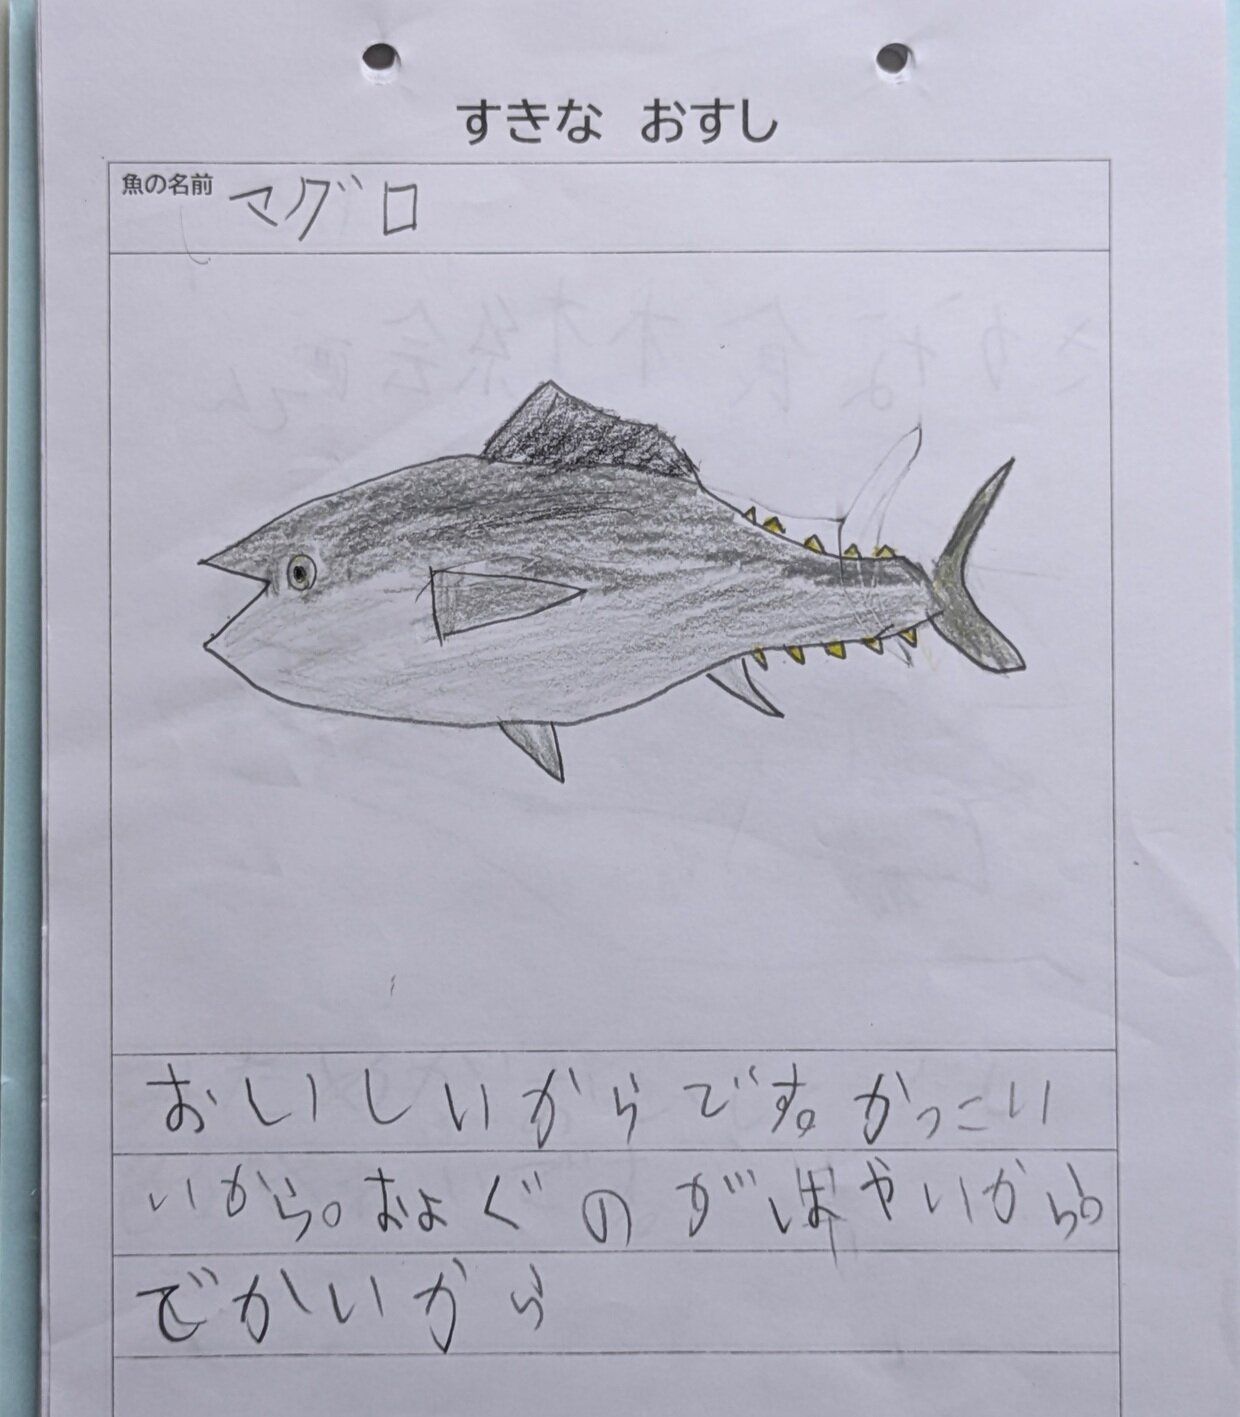 すきな おすし
魚の名前 マグロ
おいしいからです。かっこい
いから。およぐのがはやいから。
でかいから